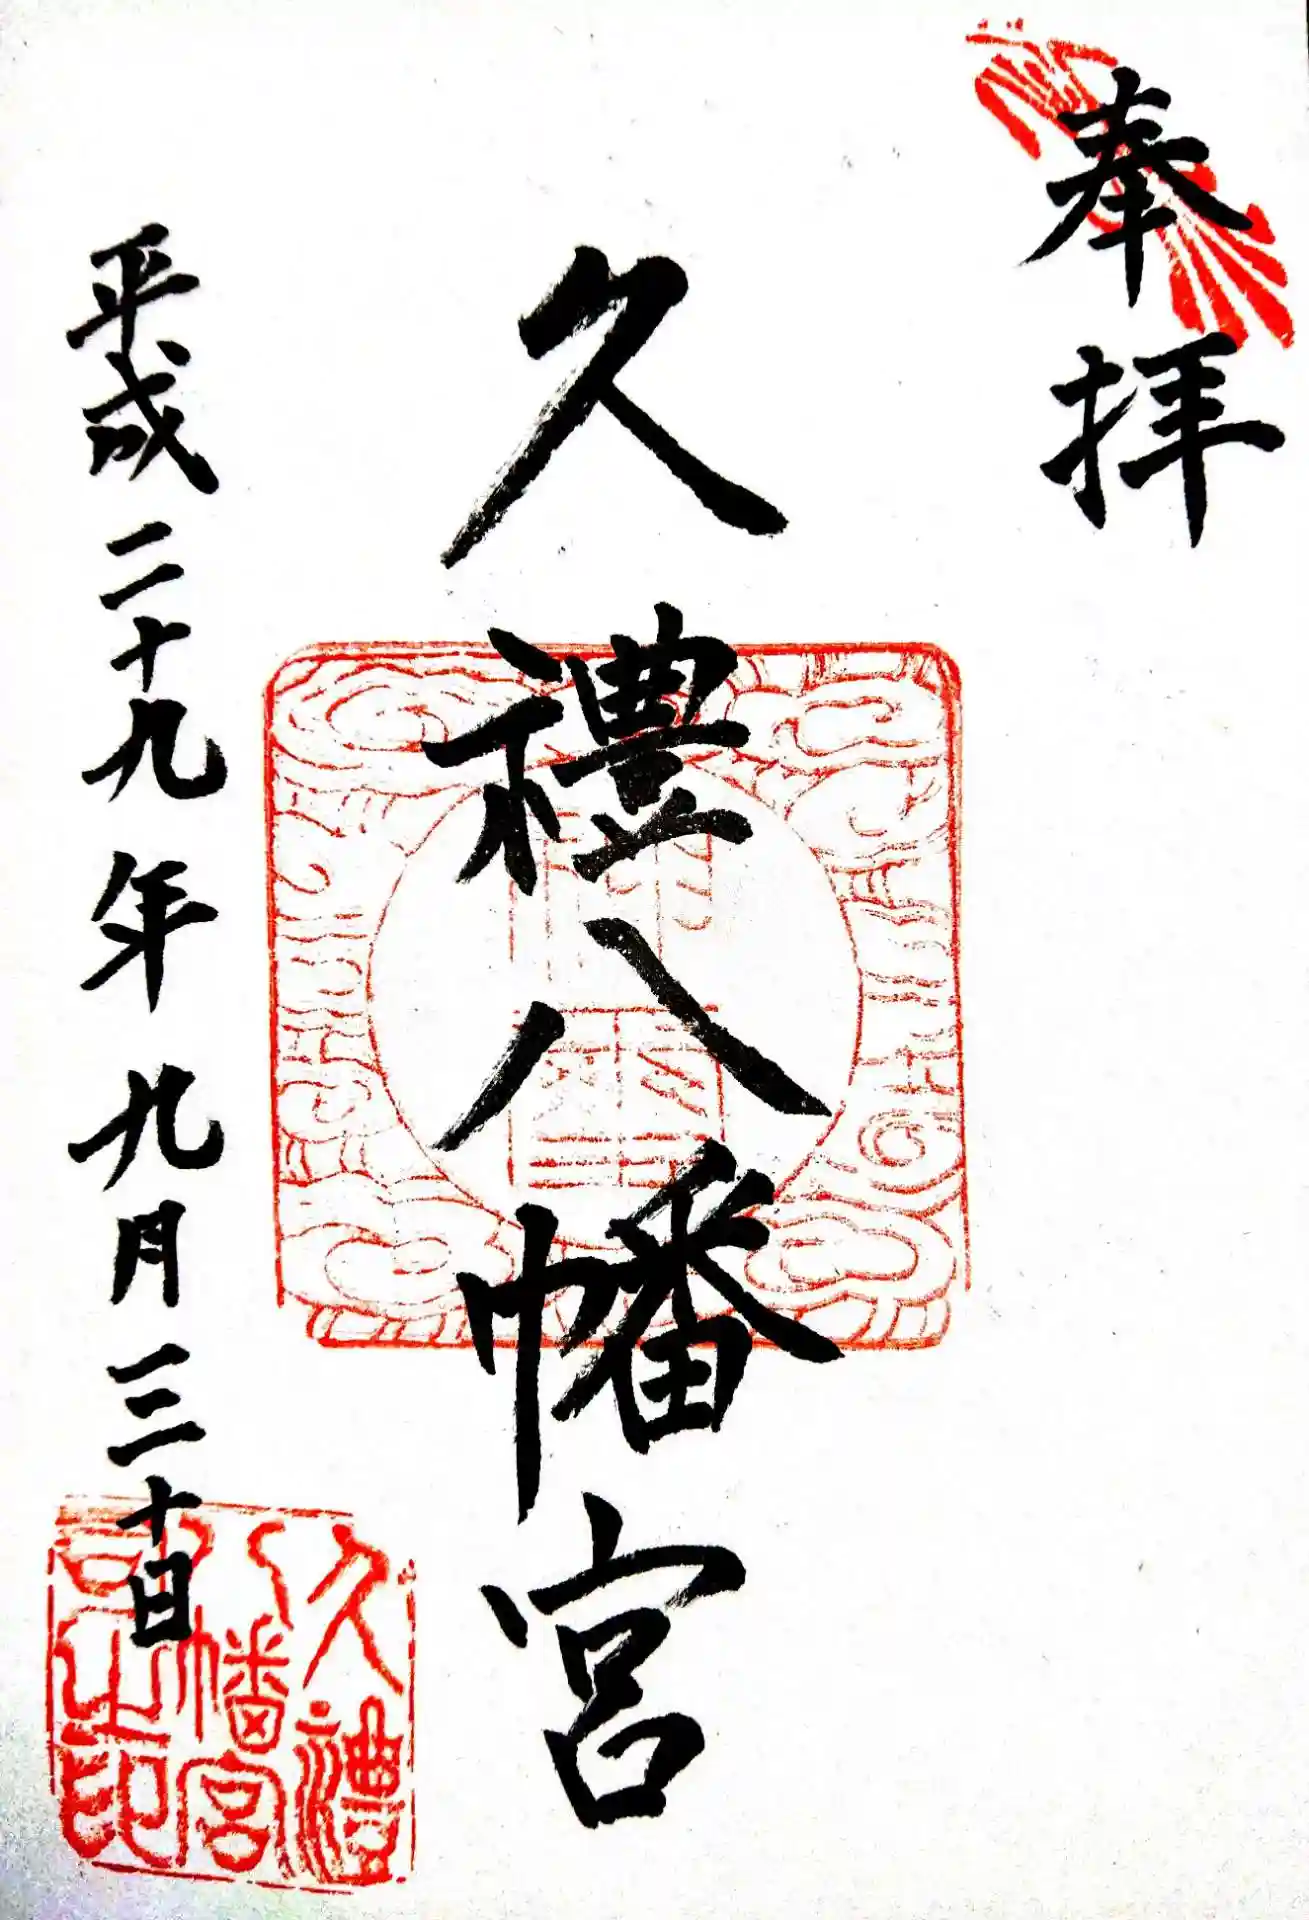 奉拝
久禮八幡宮
平成二十九年九月三十日
久禮
八幡宮
司之印